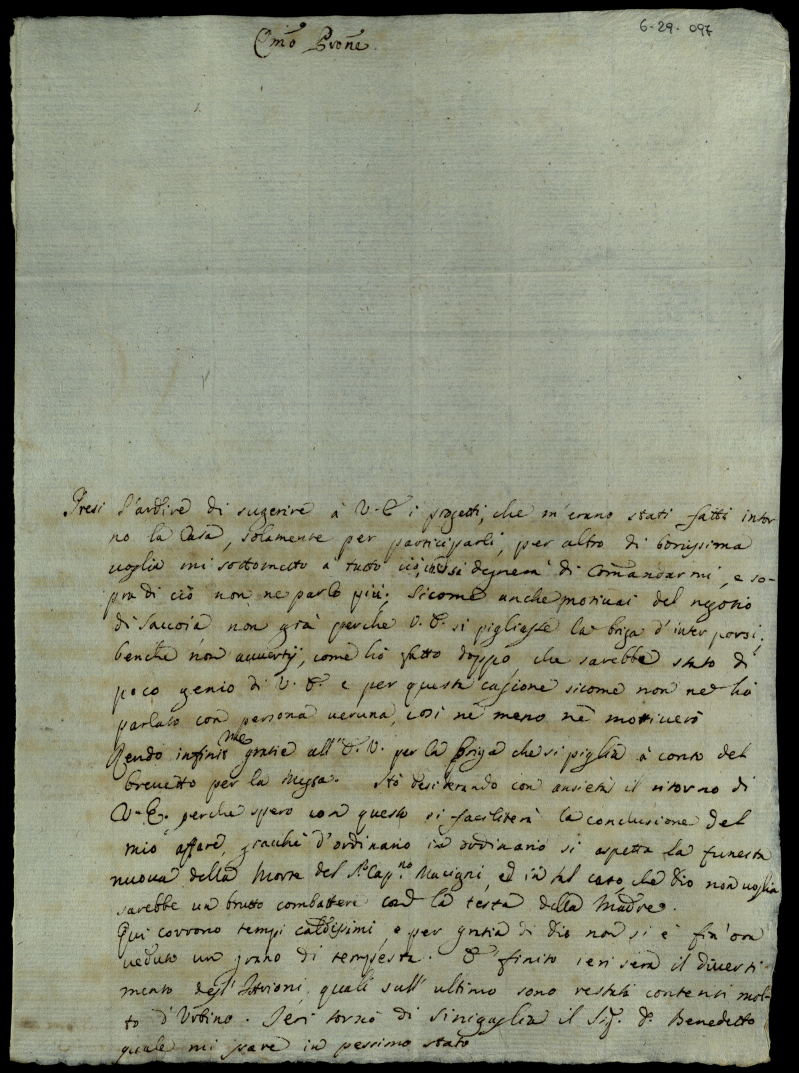 6-29-097
Em̃o Prone
Presi l'ardire di sugerire à V. E i progetti, che m'erano stati fatti intor
no la Casa, solamente per participarli, per altro di bonissima
voglia mi sottometto à tutto ciò, che si degnerà di Com̃andarmi, e so-
pra di ciò non ne parlo più; sicome anche motivai del negotio
di Saccoia non già perche V. E. si pigliasse la briga d'interporsi,
benche non avvertij, come hò fatto doppo, che sarebbe stato di
poco genio di V. E. e per questa cagione sicome non ne hò
parlato con persona veruna, così nè meno nè mottiverò
Rendo infinite gratie all' E. V. per la briga che si piglia à conto del
brevetto per la Messa. Stò desiderando con ansietà il ritorno di
V. E. perche spero con questo si faciliterà la conclusione del
mio affare, giachè d'ordinario in ordinario si aspetta la funesta
nuova della Morte del Sr. Cap.no Macigni, ed in tal caso, che Dio non voglia
sarebbe un brutto combattere con la testa della Madre.
Qui corrono tempi caldissimi, e per gratia di Dio non si è fin' ora
veduto un grano di tempesta. È finito ieri sera il diverti
mento degl' Istrioni, quali sull' ultimo sono restati contenti mol-
to d'Urbino. Ieri tornò di Sinigaglia il Sig. Dr. Benedetto
quale mi pare in pessimo stato